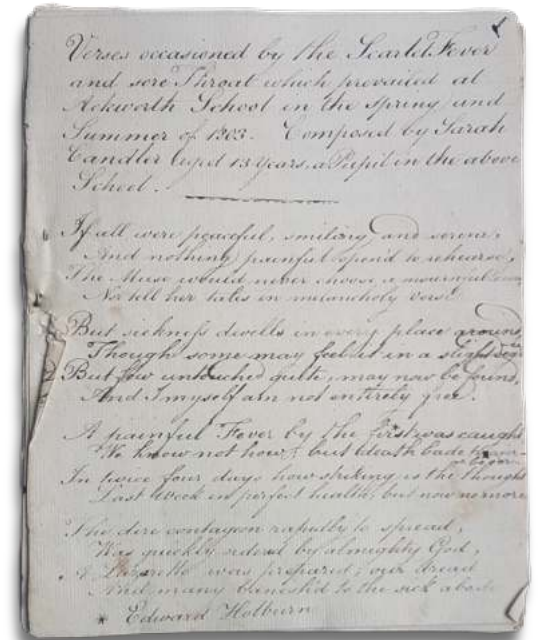 Verses occasioned by the Scarlet Fever
and sore Throat which prevailed at
Ackworth School in the spring and
Summer of 1803. Composed by Sarah
Candler Aged 13 Years, a Pupil in the above
School.
If all were peaceful, smiling and serene,
And nothing painful to rehearse,
The Muse would never choose a mournful
Nor tell her tales in melancholy verse.
But sickness dwells in every place around,
Though some may feel it in a slight
But few untouched quite, may now be found,
And I myself am not entirely free.
A painful Fever by the first was caught
We know not how; but death bade
In twice four days how striking is the thought
Last Week in perfect health, but now no more
The dire contagion rapidly to spread,
Was quickly by almighty God,
A Lazaretto was prepared; our dread
And many banish'd to the sick abode
* Edward Holburn